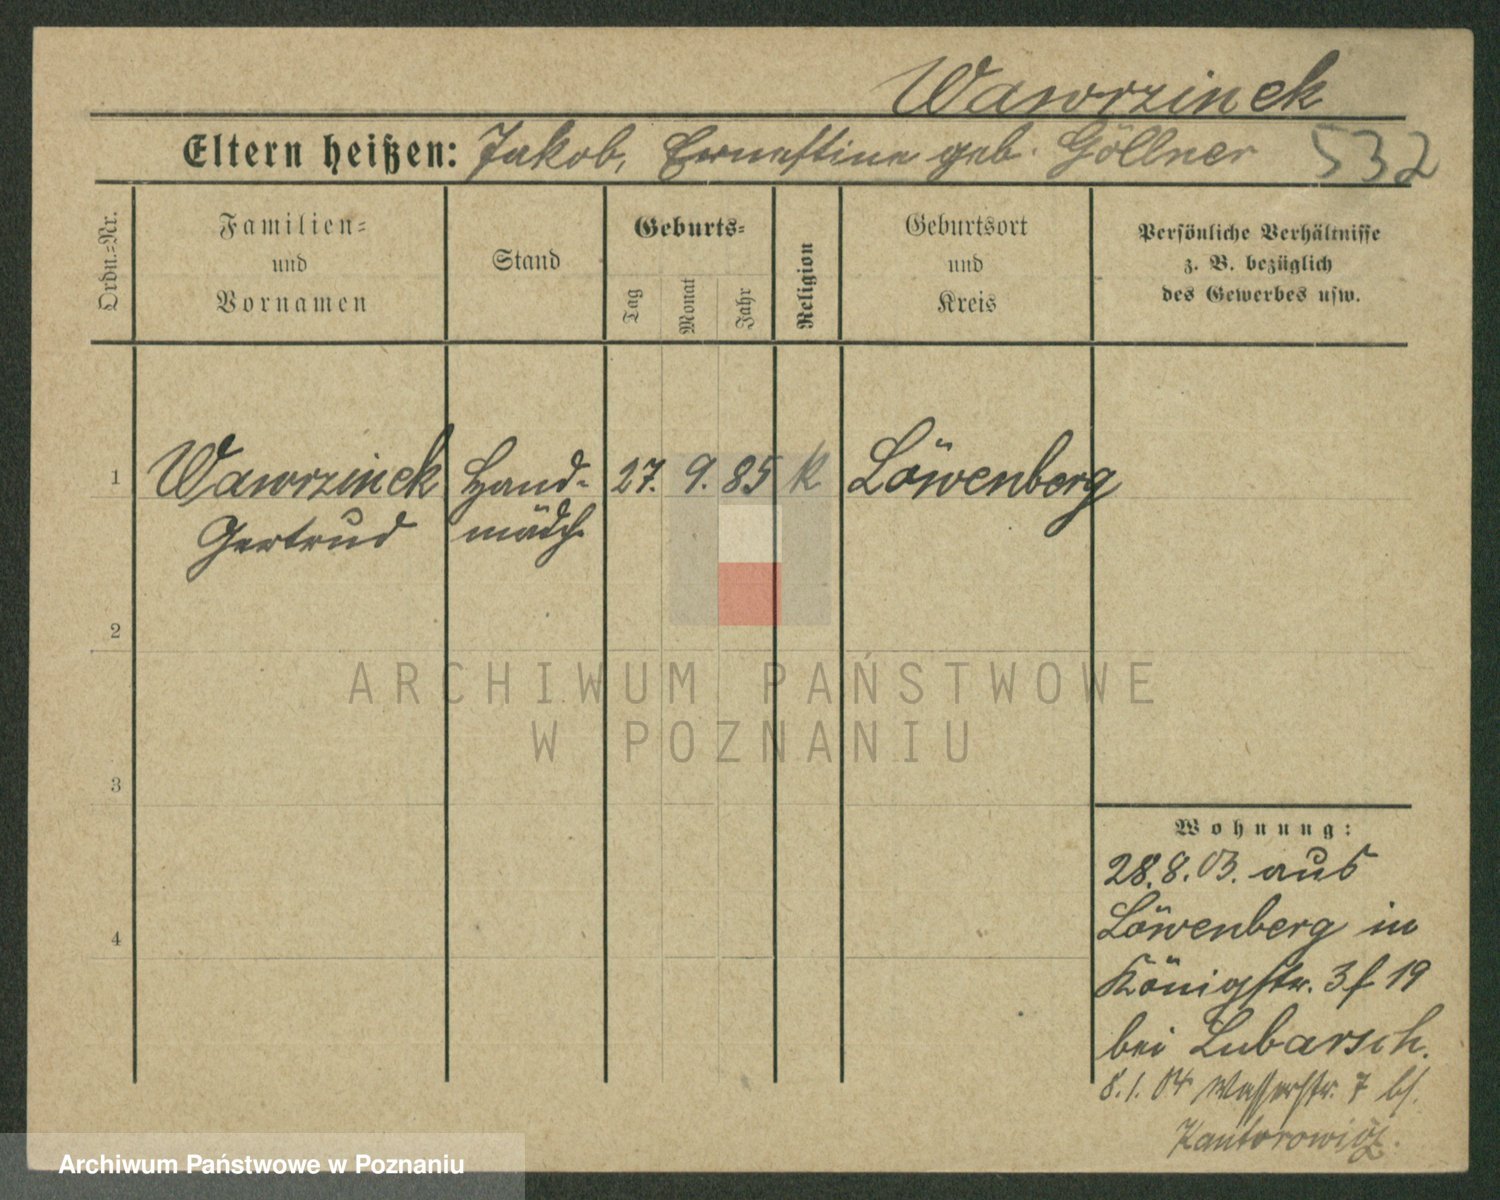 Wawrzinek
Eltern heißen: Jakob, Ernestine geb. Göllner 532
Ordn.=Nr.
Familien=
und
Vornamen
Stand
Geburts=
Tag
Monat
Jahr
Religion
Geburtsort
und
Kreis
Persönliche Verhältnisse
z. B. bezüglich
des Gewerbes usw.
1 Wawrzinek Hand= 27. 9. 85 K Löwenberg
Gertrud mädch.
2
3
4
ARCHIWUM PAŃSTWOWE
W POZNANIU
Wohnung:
28.8.03. aus
Löwenberg in
Königstr. 3 f 19
bei Lubarsch.
8.1.04 Wasserstr. 7 b/.
Kantorowicz.
Archiwum Państwowe w Poznaniu